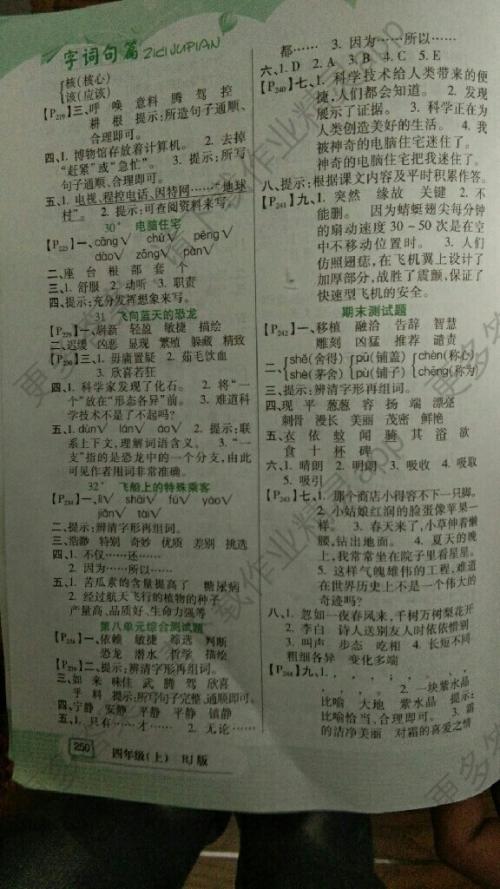 字词句篇 ZICIJUPIAN
核(核心)
该(应该)
【P219】三、呼 唤 意料 腾 驾 控
耕 根 提示:所造句子通顺、
合理即可。
四、1. 博物馆存放着计算机。 2. 去掉
“赶紧”或“急忙”。 3. 提示:所写
句子通顺、合理即可。
五、1. 电视、程控电话、因特网……“地球
村”。 2. 提示:可查阅资料来写。
30* 电脑住宅
【P223】一、cāng√ chú√ pēng√
dào√ zōng√ pàn√
二、座 台 根 部 套 个
三、1. 舒服 2. 动听 3. 职责
四、提示:充分发挥想象来写。
31 飞向蓝天的恐龙
【P229】一、刷新 轻盈 敏捷 描绘
二、迟缓 凶恶 显现 繁殖 躲藏 精致
【P230】三、1. 毋庸置疑 2. 茹毛饮血
3. 欣喜若狂
四、1. 科学家发现了化石。 2. 将“一
个”放在“形态各异”前。 3. 难道科
学技术不是了不起吗?
五、1. dùn√ lán√ áo√ 2. 提示:联
系上下文,理解词语含义。 3. “一
支”指的是恐龙中的一个分支,由此
可见作者用词非常准确。
32* 飞船上的特殊乘客
【P234】一、lì√ shài√ fú√ yáo√
jiān√ tāi√
二、提示:辨清字形再组词。
三、浩渺 特别 奇妙 优质 差别 挑选
四、1. 不仅……还……
2. 因为……所以……
五、1. 苦瓜素的含量提高了 糖尿病
2. 经过航天飞行的植物的种子
产量高、品质好、生命力强等
第八单元综合测试题
【P238】一、依赖 敏捷 筛选 判断
恐龙 潜水 哲学 描绘
【P239】二、提示:辨清字形再组词。
三、如 来 味佳 武 腾 驾 欣喜
乎 料 提示:所写句子完整、通顺即可。
四、宁静 安静 平静 平静 镇静
五、1. 只有……才…… 2. 无论……
250 四年级(上) RJ版
都…… 3. 因为……所以……
六、1. D 2. A 3. B 4. C 5. E
【P240】七、1. 科学技术给人类带来的便
捷,人们都会知道。 2. 发现
展示了证据。 3. 科学正在为
人类创造美好的生活。 4. 我
被神奇的电脑住宅迷住了。
神奇的电脑住宅把我迷住了。
八、提示:根据课文内容及平时积累作答。
【P241】九、1. 突然 缘故 关键 2. 不
能删。 因为蜻蜓翅尖每分钟
的扇动速度30~50次是在空
中不移动位置时。 3. 人们
仿照翅痣,在飞机翼上设计了
加厚部分,战胜了震颤,保证了
快速型飞机的安全。
期末测试题
【P242】一、移植 融洽 告辞 智慧
雕刻 凶猛 推荐 谴责
二、shě(舍得) pū(铺盖) chèn(称心)
shè(茅舍) pù(铺子) chēng(称为)
三、提示:辨清字形再组词。
四、现 平 葱葱 容 扬 端 漂亮
刺骨 漫长 美丽 茂密 鲜艳
五、衣 依 蚊 闻 骑 其 浴 欲
食 十 杯 碑
六、1. 晴朗 2. 明朗 3. 吸收 4. 吸取
5. 吸引
【P243】七、1. 那个商店小得容不下一只脚。
2. 小姑娘红润的脸蛋像苹果一
样。 3. 春天来了,小草伸着懒
腰,钻出地面。 4. 夏天的晚
上,我常常坐在院子里看星星。
5. 这样气魄雄伟的工程,难道
在世界历史上不是一个伟大的
奇迹吗?
八、1. 忽如一夜春风来,千树万树梨花开
2. 李白 诗人送别友人时依依惜别
3. 叫声 步态 吃相 4. 长短不同
粗细各异 变化多端
【P244】九、1. , , , , ,
, 。 2. 一块紫水晶
比喻 大地 紫水晶 提示:
比喻恰当、合理即可。 3. 霜
的洁净美丽 对霜的喜爱之情